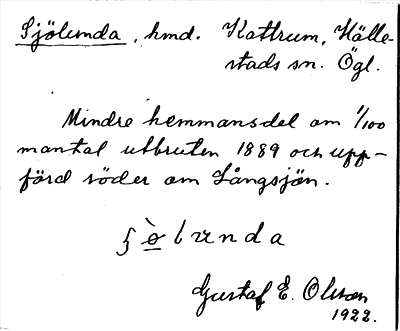 Sjölunda, hmd. Kattrum, Hälle-
stads sn. Ögl.
Mindre hemmansdel om 1/100
mantal utbruten 1889 och upp-
förd söder om Långsjön.
ʃö̀lunda
Gustaf E. Olsson
1922.